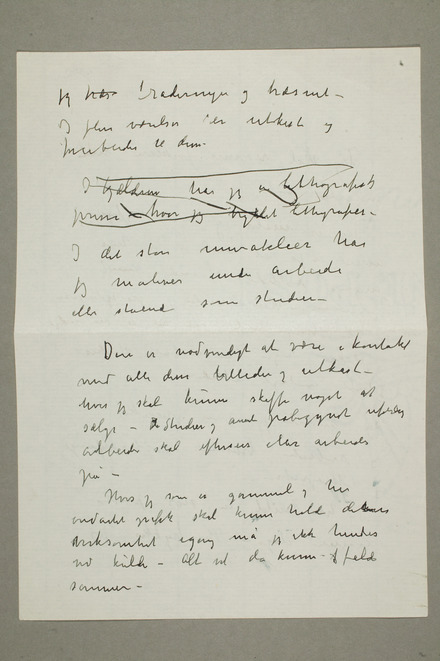 jeg har Iraderinger og træsnit –
I flere værelser er utkast og
forarbeider til dem.
I kjelderen har jeg en lithografisk
presse hvor jeg trykket lithografier –
I det store murateliér har
jeg malerier under arbeide
eller stående som studier –
Det er nødvendigt at være i kontakt
med alle disse billeder og utkast –
hvis jeg skal kunne skaffe noget at
sælge – Studier og andet påbegyndt
arbeide skal eftersees eller arbeides
på –
Hvis jeg som er gammel og har
skal kunne holde denne
virksomhet igang må jeg ikke hindres
ved kulde – Alt vil da kunne falde
sammen –